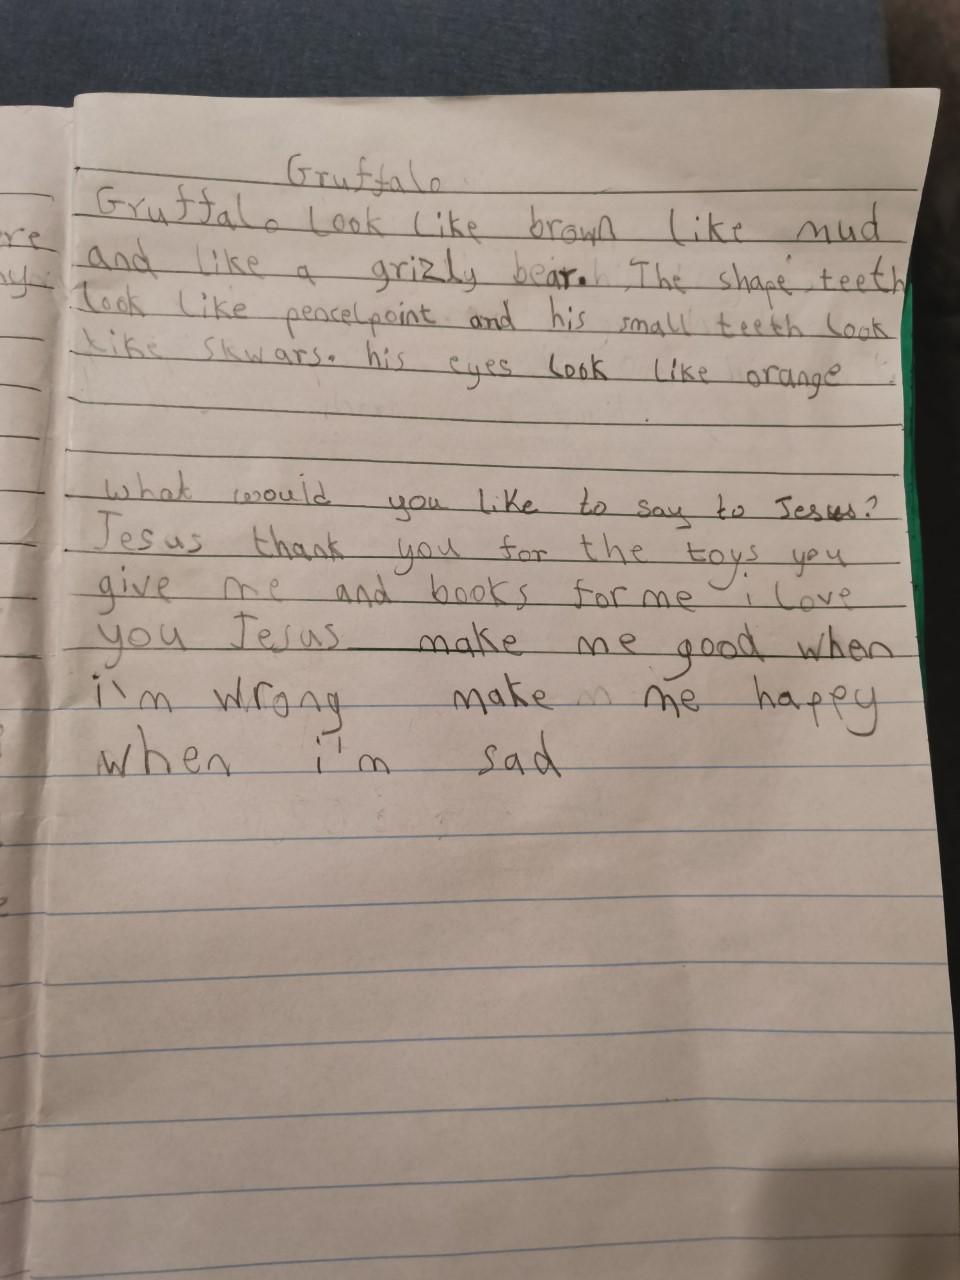 Gruffalo
Gruffalo look like brown like mud
and like a grizly bear. The shape teeth
look like pencelpoint and his small teeth look
like skwars. his eyes look like orange
What would you like to say to Jesus?
Jesus thank you for the toys you
give me and books for me i love
you Jesus make me good when
i'm wrong make me happy
when i'm sad